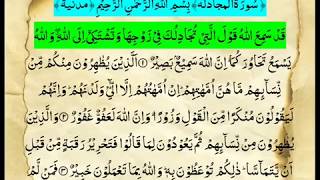 ﴿ سُورَةُ الْمُجَادِلَةِ ﴾ بِسْمِ اللهِ الرَّحْمٰنِ الرَّحِيْمِ ﴿ مَدَنِيَّة ﴾
قَدْ سَمِعَ اللهُ قَوْلَ الَّتِیْ تُجَادِلُكَ فِیْ زَوْجِهَا وَتَشْتَكِیْۤ اِلَی اللهِ ۖ وَاللهُ
یَسْمَعُ تَحَاوُرَكُمَا ؕ اِنَّ اللهَ سَمِیْعٌۢ بَصِیْرٌ ﴿۱﴾ اَلَّذِیْنَ یُظٰهِرُوْنَ مِنْكُمْ مِّنْ
نِّسَآىِٕهِمْ مَّا هُنَّ اُمَّهٰتِهِمْ ؕ اِنْ اُمَّهٰتُهُمْ اِلَّا الّٰٓـِٔیْ وَلَدْنَهُمْ ؕ وَاِنَّهُمْ
لَیَقُوْلُوْنَ مُنْكَرًا مِّنَ الْقَوْلِ وَزُوْرًا ؕ وَاِنَّ اللهَ لَعَفُوٌّ غَفُوْرٌ ﴿۲﴾ وَالَّذِیْنَ
یُظٰهِرُوْنَ مِنْ نِّسَآىِٕهِمْ ثُمَّ یَعُوْدُوْنَ لِمَا قَالُوْا فَتَحْرِیْرُ رَقَبَةٍ مِّنْ قَبْلِ
اَنْ یَّتَمَآسَّا ؕ ذٰلِكُمْ تُوْعَظُوْنَ بِهٖ ؕ وَاللهُ بِمَا تَعْمَلُوْنَ خَبِیْرٌ ﴿۳﴾ فَمَنْ لَّمْ